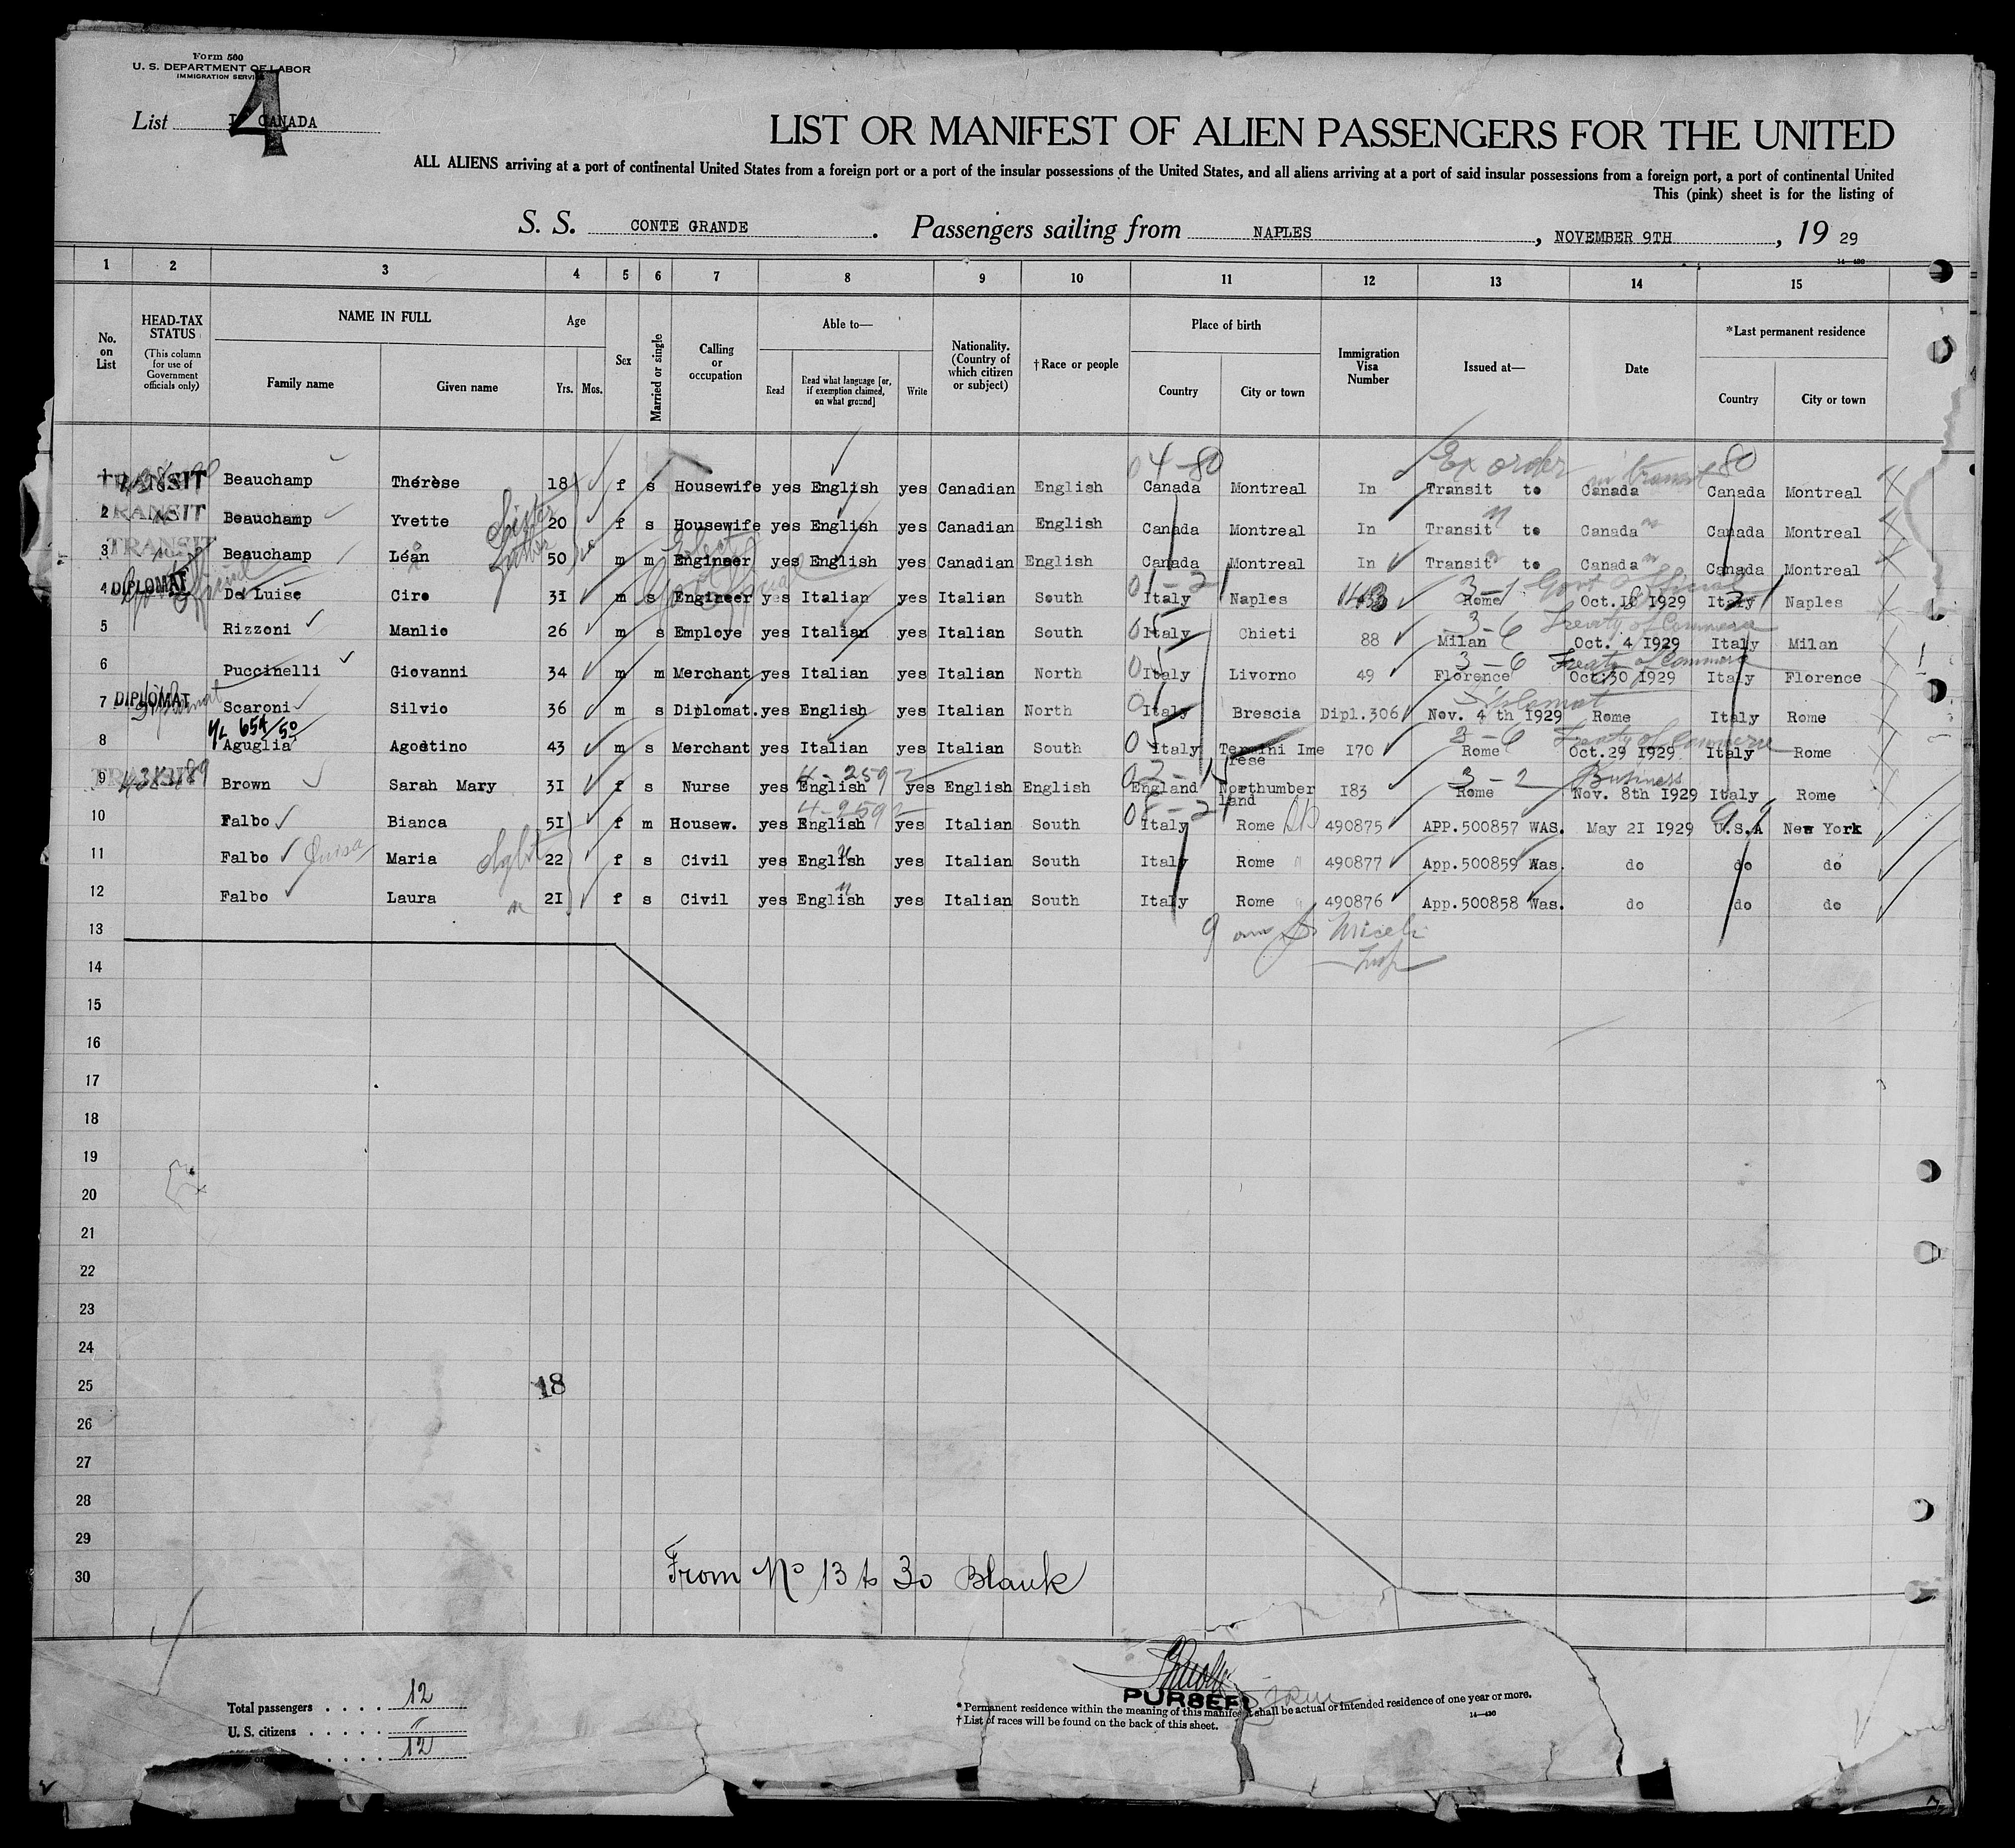 Form 500
U. S. DEPARTMENT OF LABOR
IMMIGRATION SERVICE
4
List CANADA
LIST OR MANIFEST OF ALIEN PASSENGERS FOR THE UNITED
ALL ALIENS arriving at a port of continental United States from a foreign port or a port of the insular possessions of the United States, and all aliens arriving at a port of said insular possessions from a foreign port, a port of continental United
This (pink) sheet is for the listing of
S. S. CONTE GRANDE. Passengers sailing from NAPLES, NOVEMBER 9TH, 19 29
14—430
1 2 3 4 5 6 7 8 9 10 11 12 13 14 15
No. on List
HEAD-TAX STATUS (This column for use of Government officials only)
NAME IN FULL
Family name Given name
Age
Yrs. Mos.
Sex
Married or single
Calling or occupation
Able to—
Read Read what language [or, if exemption claimed, on what ground] Write
Nationality. (Country of which citizen or subject)
†Race or people
Place of birth
Country City or town
Immigration Visa Number
Issued at—
Date
*Last permanent residence
Country City or town
04-80 Ex order in transit 80
1 TRANSIT Beauchamp Thérèse 18 f s Housewife yes English yes Canadian English Canada Montreal In Transit to Canada Canada Montreal
2 TRANSIT Beauchamp Yvette Sister 20 f s Housewife yes English yes Canadian English Canada Montreal In Transit to Canada Canada Montreal
3 TRANSIT Beauchamp Léan 50 m m Engineer yes English yes Canadian English Canada Montreal In Transit to Canada Canada Montreal
01-21 3-1 Govt Official
4 DIPLOMAT De Luise Ciro 31 m s Engineer yes Italian yes Italian South Italy Naples Rome Oct. 1929 Italy Naples
3-6 Treaty of Commerce
5 Rizzoni Manlio 26 m s Employe yes Italian yes Italian South Italy Chieti 88 Milan Oct. 4 1929 Italy Milan
3-6 Treaty of Commerce
6 Puccinelli Giovanni 34 m m Merchant yes Italian yes Italian North Italy Livorno 49 Florence Oct. 30 1929 Italy Florence
Diplomat
7 DIPLOMAT Scaroni Silvio 36 m s Diplomat. yes English yes Italian North Italy Brescia Dipl.306 Nov. 4 th 1929 Rome Italy Rome
654/50 3-6 Treaty of Commerce
8 Aguglia Agostino 43 m s Merchant yes Italian yes Italian South Italy Termini Ime rese 170 Rome Oct.29 1929 Italy Rome
4-2592 3-2 Business
9 TRANSIT Brown Sarah Mary 31 f s Nurse yes English yes English English England Northumber land 183 Rome Nov. 8th 1929 Italy Rome
4-2592
10 Falbo Bianca 51 f m Housew. yes English yes Italian South Italy Rome 490875 APP.500857 WAS. May 21 1929 U.S.A New York
11 Falbo Maria 22 f s Civil yes English yes Italian South Italy Rome 490877 App.500859 Was. do do do
12 Falbo Laura 21 f s Civil yes English yes Italian South Italy Rome 490876 App.500858 Was. do do do
13
14
15
16
17
18
19
20
21
22
23
24
25 18
26
27
28
29
30 From No 13 to 30 Blank
PURSER
Total passengers . . . . 12
U. S. citizens . . . . .
12
* Permanent residence within the meaning of this manifest shall be actual or intended residence of one year or more.
† List of races will be found on the back of this sheet.
14—430